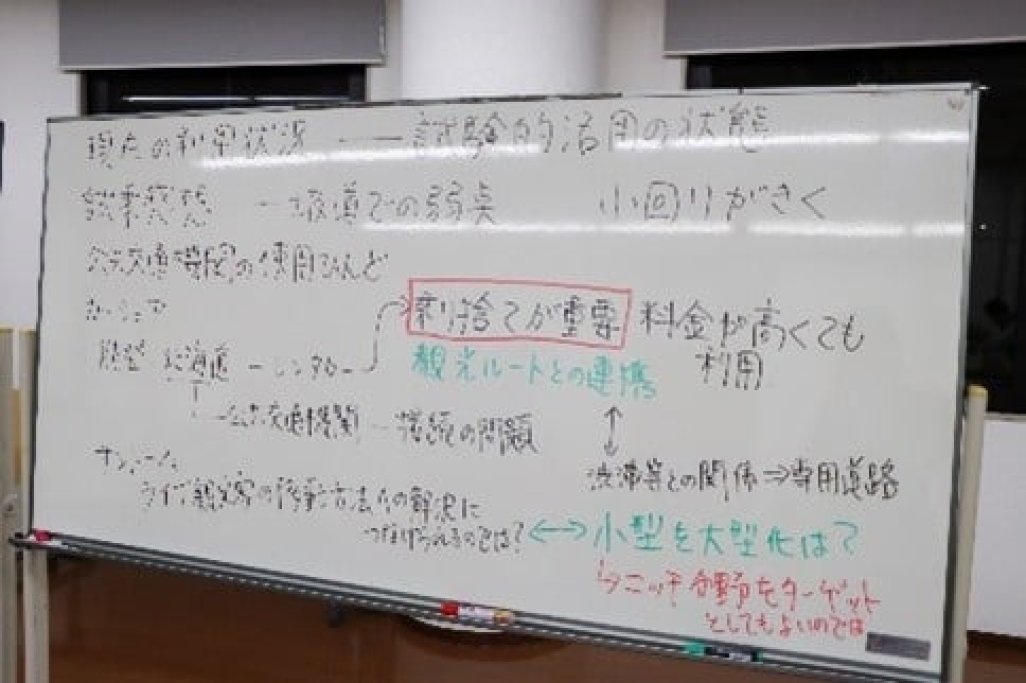 現在の利用状況 ― 試験的活用の状態
営業形態 ― 坂道での弱点 小回りがきく
公共交通機関の使用ほとんど
カーシェア
乗り捨てが重要 料金が高くても利用
北海道 ― レンタカー
観光ルートとの連携
公共交通機関 ― 接続の問題
渋滞等との関係 ⇒ 専用道路
ライブ観客の移動方法の解決に
つなげられるのでは? ↔ 小型を大型化は?
→ニッチ分野をターゲット
としてもよいのでは